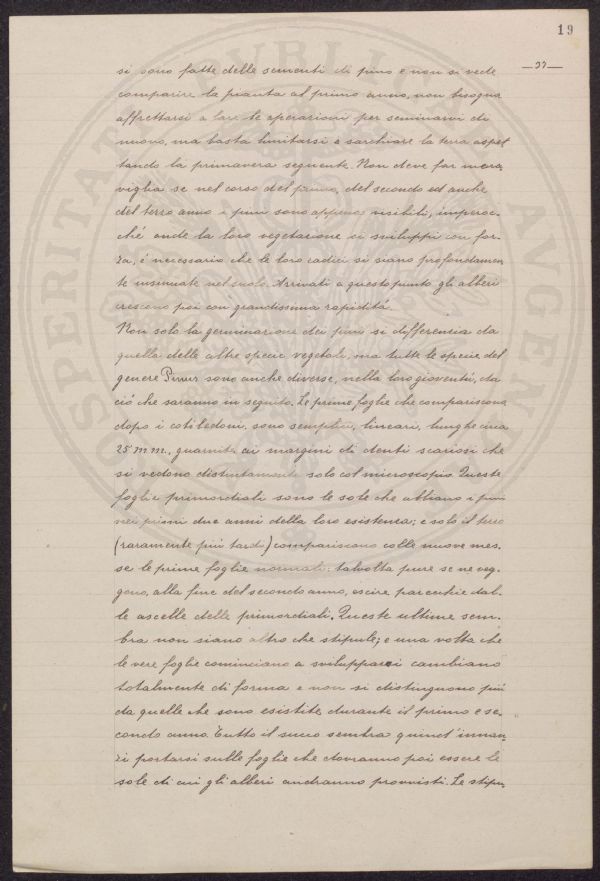 19
— 22 —
si sono fatte delle sementi di pino e non si vede
comparire la pianta al primo anno, non bisogna
affrettarsi a fare le operazioni per seminarvi di
nuovo, ma basta limitarsi a sarchiare la terra aspet
tando la primavera seguente. Non deve far mera
viglia se nel corso del primo, del secondo ed anche
del terzo anno i pini sono appena visibili, imperoc-
ché onde la loro vegetazione si sviluppi con for-
za, é necessario che le loro radici si siano profondamen
te insinuate nel suolo. Arrivati a questo punto gli alberi
crescono poi con grandissima rapidità.
Non solo la germinazione dei pini si differenzia da
quella delle altre specie vegetali, ma tutte le specie del
genere Pinus sono anche diverse, nella loro gioventú, da
ció che saranno in seguito. Le prime foglie che compariscono
dopo i cotiledoni, sono semplici, lineari, lunghe circa
25 m.m., guarnite ai margini di denti scariosi che
si vedono distintamente solo col microscopio. Queste
foglie primordiali sono le sole che abbiano i pini
nei primi due anni della loro esistenza; e solo il terzo
(raramente più tardi) compariscono colle nuove mes.
se le prime foglie normali: talvolta pure se ne veg-
gono, alla fine del secondo anno, escire parecchie dal-
le ascelle delle primordiali. Queste ultime sem-
bra non siano altro che stipule; e una volta che
le vere foglie cominciano a svilupparsi cambiano
totalmente di forma e non si distinguono più
da quelle che sono esistite durante il primo e se-
condo anno. Tutto il succo sembra quind'innan
zi portarsi sulle foglie che dovranno poi essere le
sole di cui gli alberi andranno provvisti. Le stipu
PROSPERITATI PUBLICAE AUGENDAE